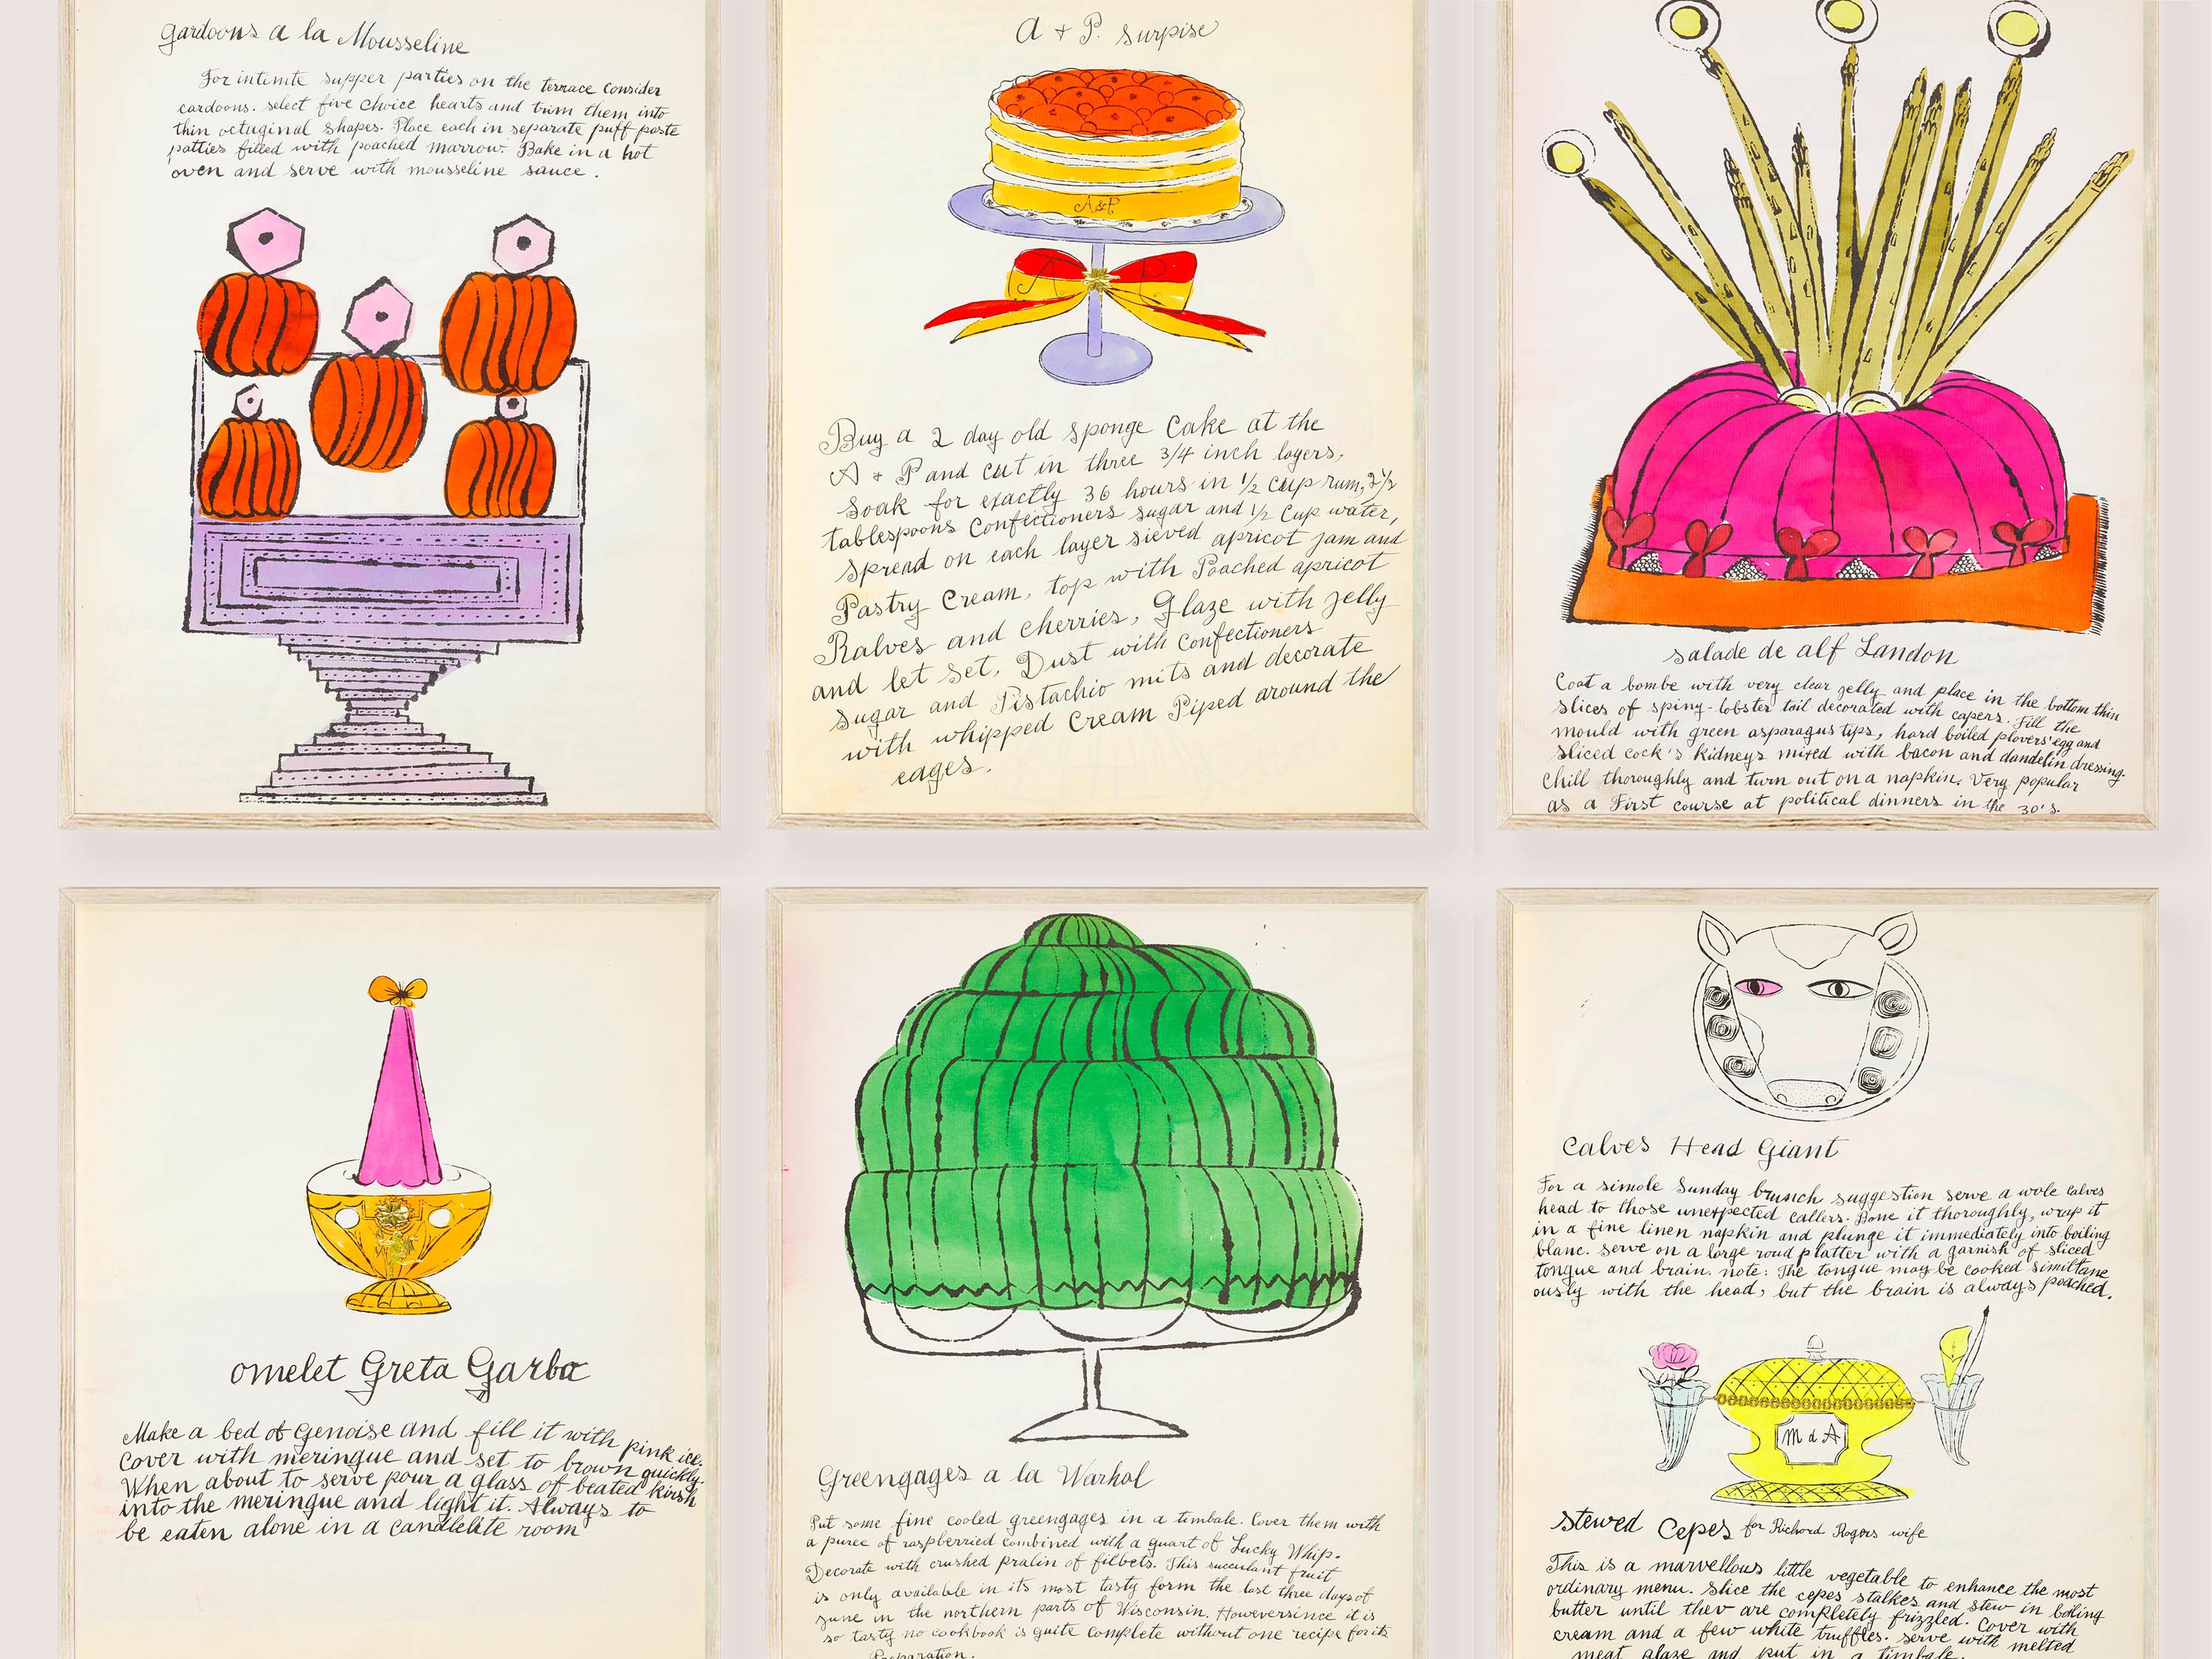 gardoons a la Mousseline
For intimte supper parties on the terrace consider
cardoons. select five choice hearts and trim them into
thin octuginal shapes. Place each in separate puff paste
patties filled with poached marrow. Bake in a hot
oven and serve with mousseline sauce.
A + P. surpise
A&P
A P
Buy a 2 day old sponge Cake at the
A + P and cut in three 3/4 inch layers,
soak for exactly 36 hours in 1/2 cup rum, 2 1/2
tablespoons Confectioners sugar and 1/2 Cup water,
spread on each layer sieved apricot jam and
Pastry Cream, top with Poached apricot
Ralves and cherries, Glaze with jelly
and let set, Dust with Confectioners
sugar and Pistachio mits and decorate
with whipped Cream Piped around the
eages.
salade de alf Landon
Coat a bombe with very clear jelly and place in the bottom thin
slices of spiny-lobster tail decorated with capers. Fill the
mould with green asparagus tips, hard boiled plovers' egg and
sliced cock's kidneys mixed with bacon and dandelin dressing.
Chill thoroughly and turn out on a napkin. Very popular
as a First course at political dinners in the 30's.
omelet Greta Garbo
Make a bed of Genoise and fill it with pink ice.
Cover with meringue and set to brown quickly.
When about to serve pour a glass of heated kirsh
into the meringue and light it. Always to
be eaten alone in a candlelite room
Greengages a la Warhol
Put some fine cooled greengages in a timbale. Cover them with
a puree of raspberried combined with a quart of Lucky Whip.
Decorate with crushed pralin of filbets. This succulant fruit
is only available in its most tasty form the last three days of
june in the northern parts of Wisconsin. Howeversince it is
so tasty no cookbook is quite complete without one recipe for its
Preparation.
Calves Head Giant
For a simole Sunday brunch suggestion serve a wole calves
head to those unexpected callers. Bone it thoroughly, wrap it
in a fine linen napkin and plunge it immediately into boiling
blanc. serve on a large roud platter with a garnish of sliced
tongue and brain. note: The tongue may be cooked similtane
ously with the head, but the brain is always poached.
M d A
stewed Cepes for Richard Rogers wife
This is a marvellous little vegetable to enhance the most
ordinary menu. slice the cepes stalkes and stew in boling
butter until thev are completely frizzled. Cover with
cream and a few white truffles. serve with melted
meat glaze and put in a timbale.